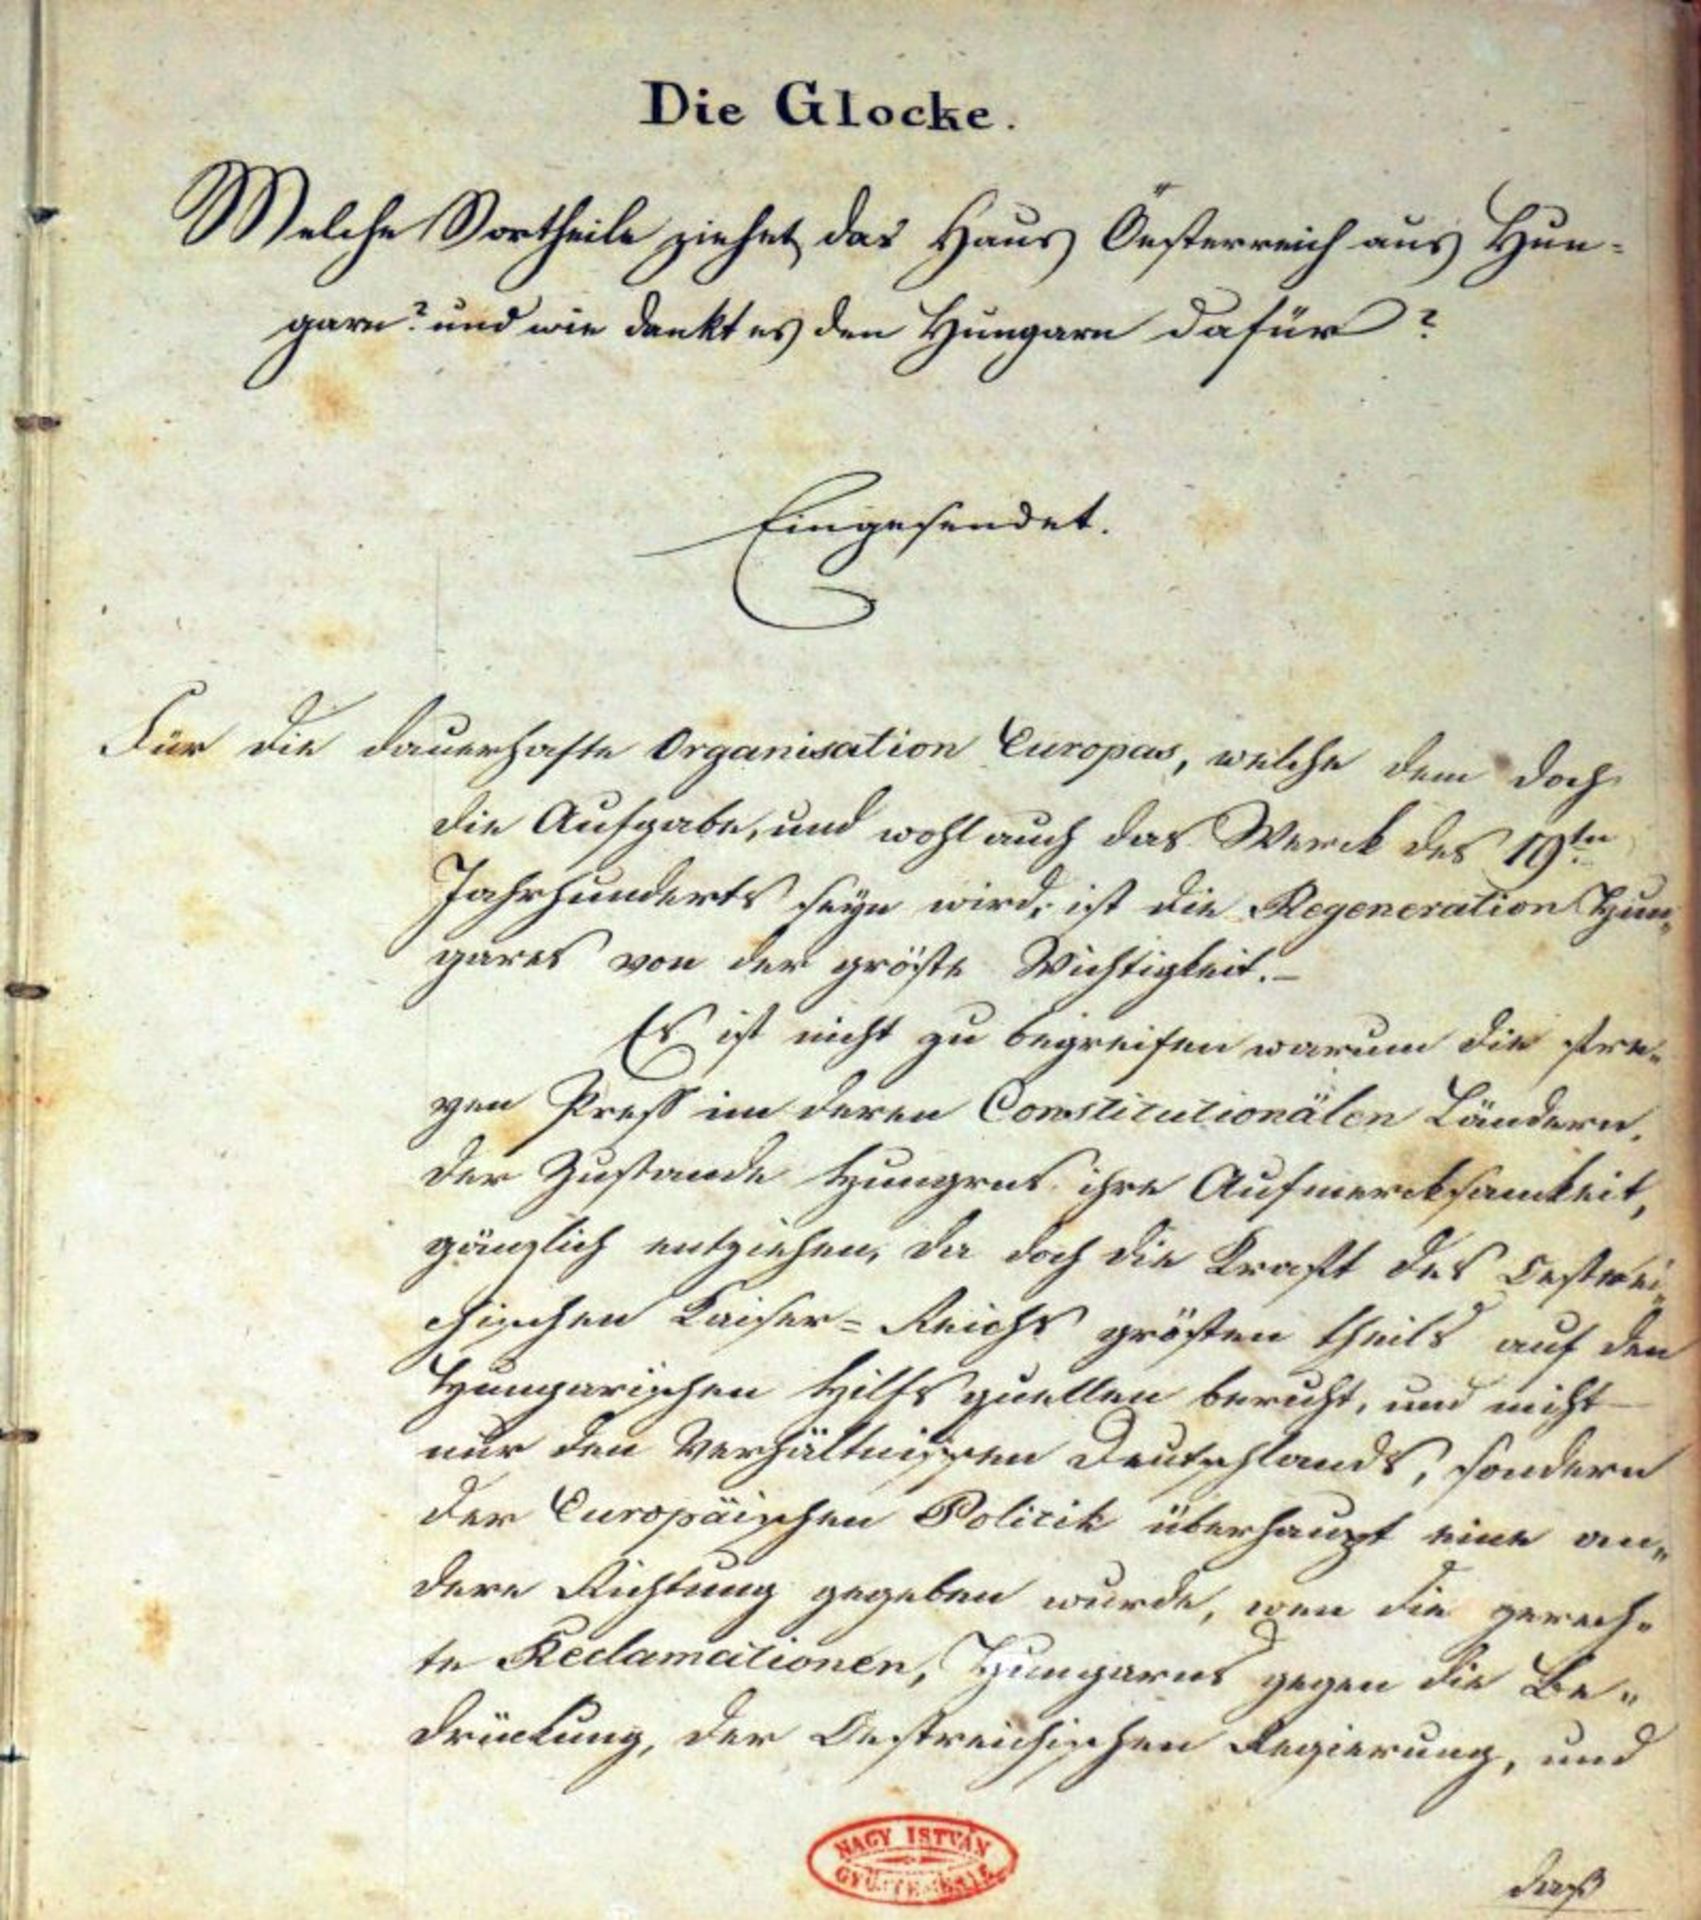 Die Glocke.
Welche Vortheile ziehet das Haus Öesterreich aus Hun=
garn? und wie dankt es den Hungarn dafür?
Eingesendet.
Für die dauerhafte Organisation Europas, welche dem doch
die Aufgabe, und wohl auch das Werck des 19ten
Jahrhunderts seyn wird, ist die Regeneration Hun=
garns von der gröste Wichtigkeit.–
Es ist nicht zu begreifen warum die
Press im deren Constitutionälen Ländern,
der Zustande Hungrns ihre Aufmercksamkeit,
gänzlich entziehen, da doch die Kraft des Oestrei=
chischen Kaiser=Reichs grösten theils auf den
Hungarischen Hilfsquellen beruht, und nicht
nur den Verhältnissen Deutschlands, sondern
der Europäischen Politik überhaupt eine an=
dere Richtung gegeben wurde, wen die gerech=
te Reclamationen, Hungarns gegen die Be=
drückung, der Oestreichischen Regierung, und
daß
NAGY ISTVÁN
GYŰJTEMÉNYE